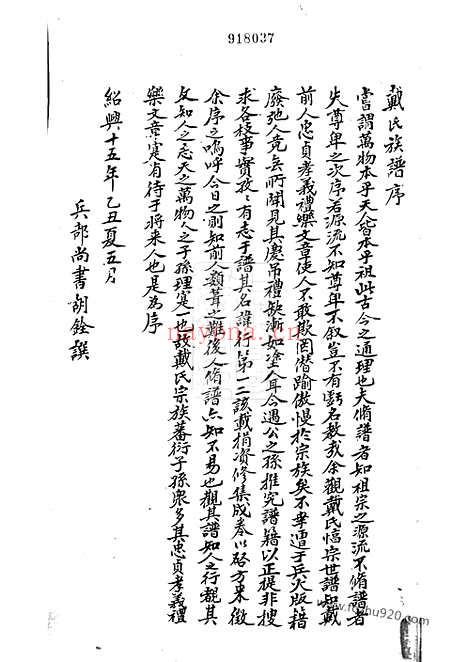 918037
戴氏族譜序
嘗謂萬物本乎天人皆本乎祖此古今之通理也夫脩譜者知祖宗之源流不脩譜者
失尊卑之次序若源流不知尊卑不叙豈不有虧名教哉余觀戴氏宗世譜知戴
前人忠貞孝義禮樂文章使人不敢欺罔僭踰傲慢於宗族矣不幸遭于兵火版籍
廢弛人竟無所聞見其慶吊禮缺漸如塗人耳今遇公之孫推究譜籍以正提非搜
求各枝事實孜〻有志于譜其名諱行第一二該載捐資修集成奉以啓方來徵
余序之嗚呼今日之前知前人顛葺之難後人脩譜亦知不易也觀其譜知人之行觀其
友知人之志天之萬物人之子孫理寔一也故戴氏宗族蕃衍子孫衆多其忠貞孝義禮
樂文章寔有待于將来人也是為序
紹興十五年乙丑夏五月
兵部尚書胡銓譔